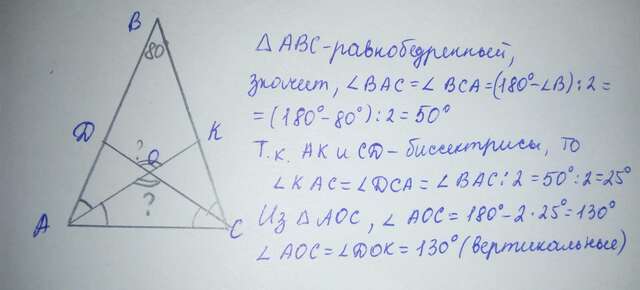 B
80
Δ ABC-равнобедренный,
значит, ∠BAC=∠BCA=(180°-∠B):2=
=(180°-80°):2=50°
Д
?
K
O
Т.к. AK и CD-биссектрисы, то
∠KAC=∠DCA=∠BAC:2=50°:2=25°
?
Из ΔAOC, ∠AOC=180°-2·25°=130°
A
C
∠AOC=∠DOK=130° (вертикальные)